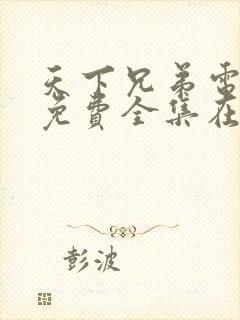 天下兄弟電
免費全集在
彭波